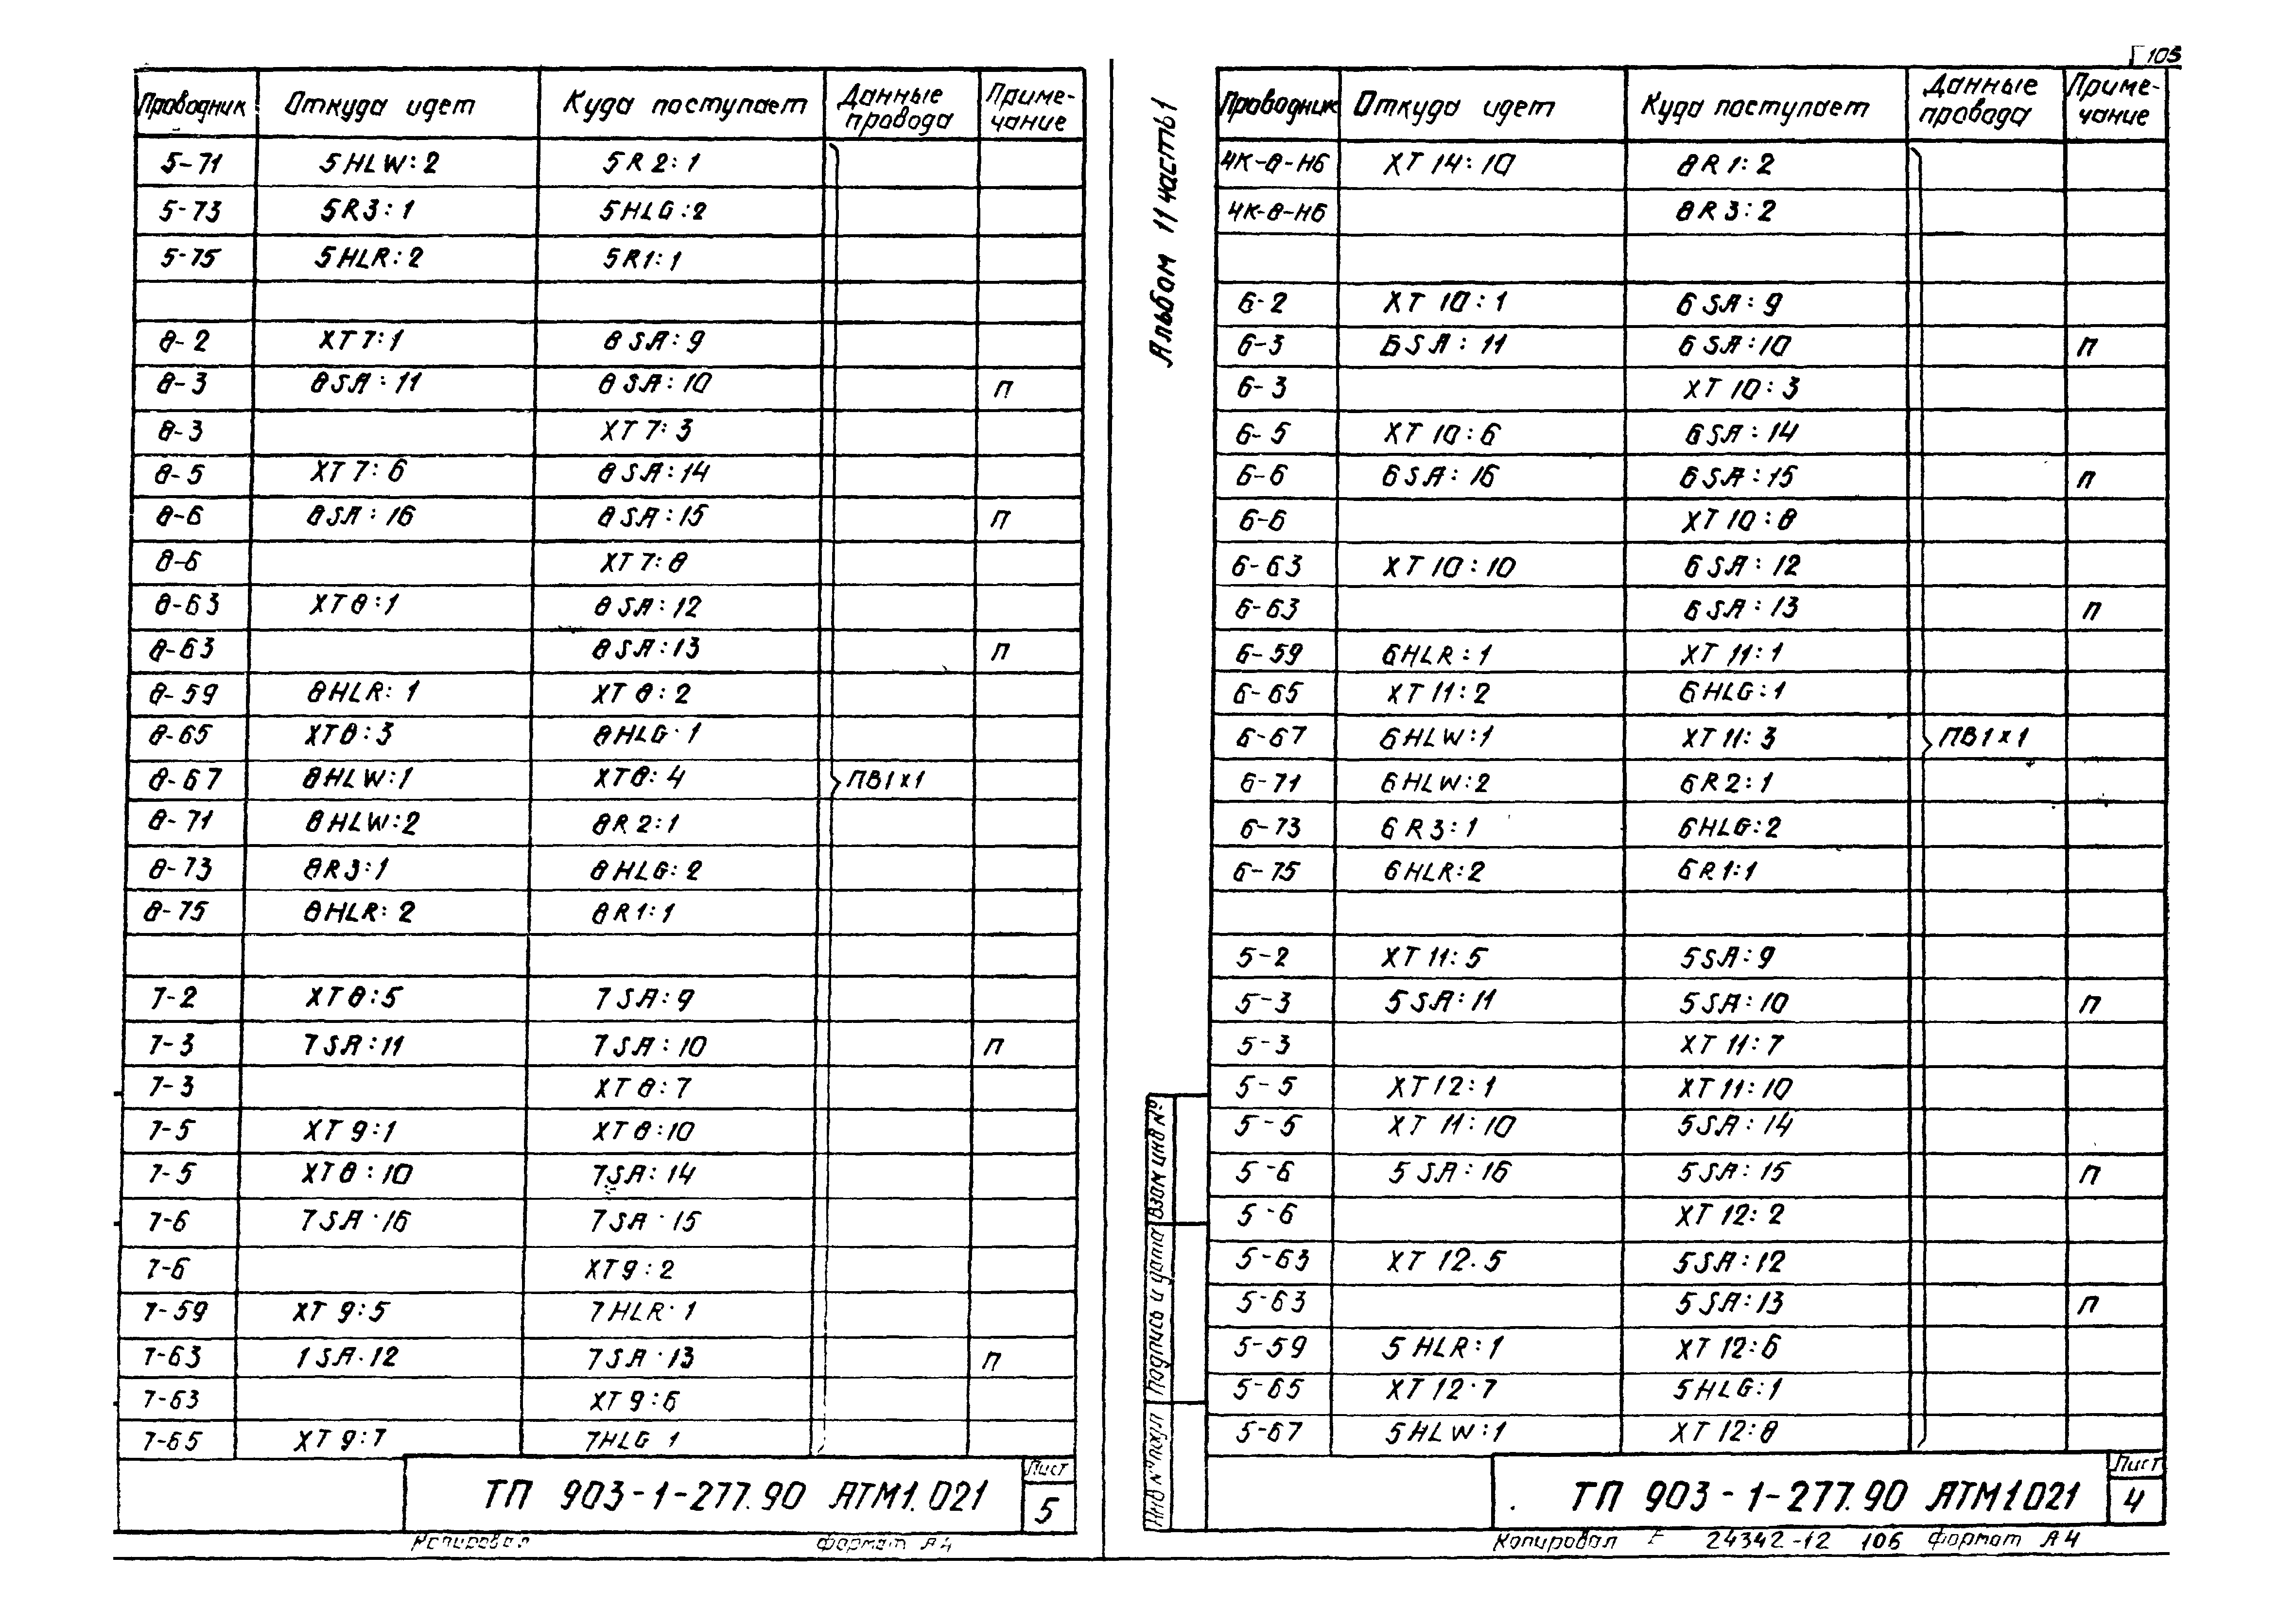 105
Проводник Откуда идет Куда поступает Данные провода Приме-чание
5-71 5HLW:2 5R2:1
5-73 5R3:1 5HLG:2
5-75 5HLR:2 5R1:1
8-2 XT7:1 8SA:9
8-3 8SA:11 8SA:10 П
8-3 XT7:3
8-5 XT7:6 8SA:14
8-6 8SA:16 8SA:15 П
8-6 XT7:8
8-63 XT8:1 8SA:12
8-63 8SA:13 П
8-59 8HLR:1 XT8:2
8-65 XT8:3 8HLG·1
8-67 8HLW:1 XT8:4 ПВ1х1
8-71 8HLW:2 8R2:1
8-73 8R3:1 8HLG:2
8-75 8HLR:2 8R1:1
7-2 XT8:5 7SA:9
7-3 7SA:11 7SA:10 П
7-3 XT8:7
7-5 XT9:1 XT8:10
7-5 XT8:10 7SA:14
7-6 7SA·16 7SA·15
7-6 XT9:2
7-59 XT9:5 7HLR·1
7-63 1SA·12 7SA·13 П
7-63 XT9:6
7-65 XT9:7 7HLG 1
ТП 903-1-277.90 АТМ1.021
Лист
5
Копировал Формат А4
Альбом 11 часть 1
Проводник Откуда идет Куда поступает Данные провода Приме-чание
4К-8-Н6 XT14:10 8R1:2
4К-8-Н6 8R3:2
6-2 XT10:1 6SA:9
6-3 6SA:11 6SA:10 П
6-3 XT10:3
6-5 XT10:6 6SA:14
6-6 6SA:16 6SA:15 П
6-6 XT10:8
6-63 XT10:10 6SA:12
6-63 6SA:13 П
6-59 6HLR:1 XT11:1
6-65 XT11:2 6HLG:1
6-67 6HLW:1 XT11:3 ПВ1х1
6-71 6HLW:2 6R2:1
6-73 6R3:1 6HLG:2
6-75 6HLR:2 6R1:1
5-2 XT11:5 5SA:9
5-3 5SA:11 5SA:10 П
5-3 XT11:7
5-5 XT12:1 XT11:10
5-5 XT11:10 5SA:14
5-6 5SA:16 5SA:15 П
5-6 XT12:2
5-63 XT12.5 5SA:12
5-63 5SA:13 П
5-59 5HLR:1 XT12:6
5-65 XT12·7 5HLG:1
5-67 5HLW:1 XT12:8
Инв № подл Подпись и дата Взам инв №
ТП 903-1-277.90 АТМ1021
Лист
4
Копировал 24342-12 106 Формат А4